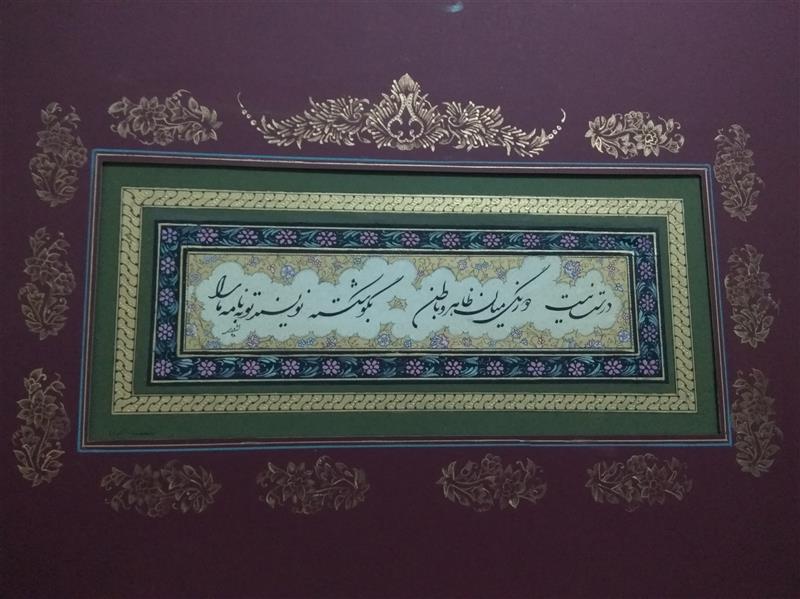 درست نیست دورنگی میان ظاهر و باطن بگو شکسته نویسند توبه نامه ما را